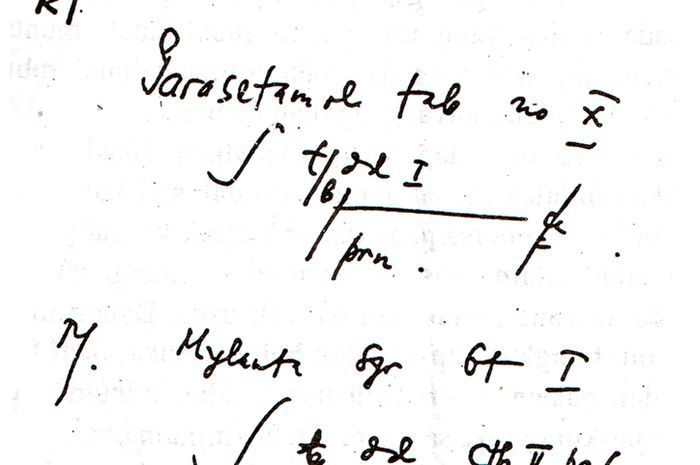 R/.
Parasetamol tab no X
ʃ t/b dd I
prn.
R/. Mylanta Syr bt I
ʃ dd cth II